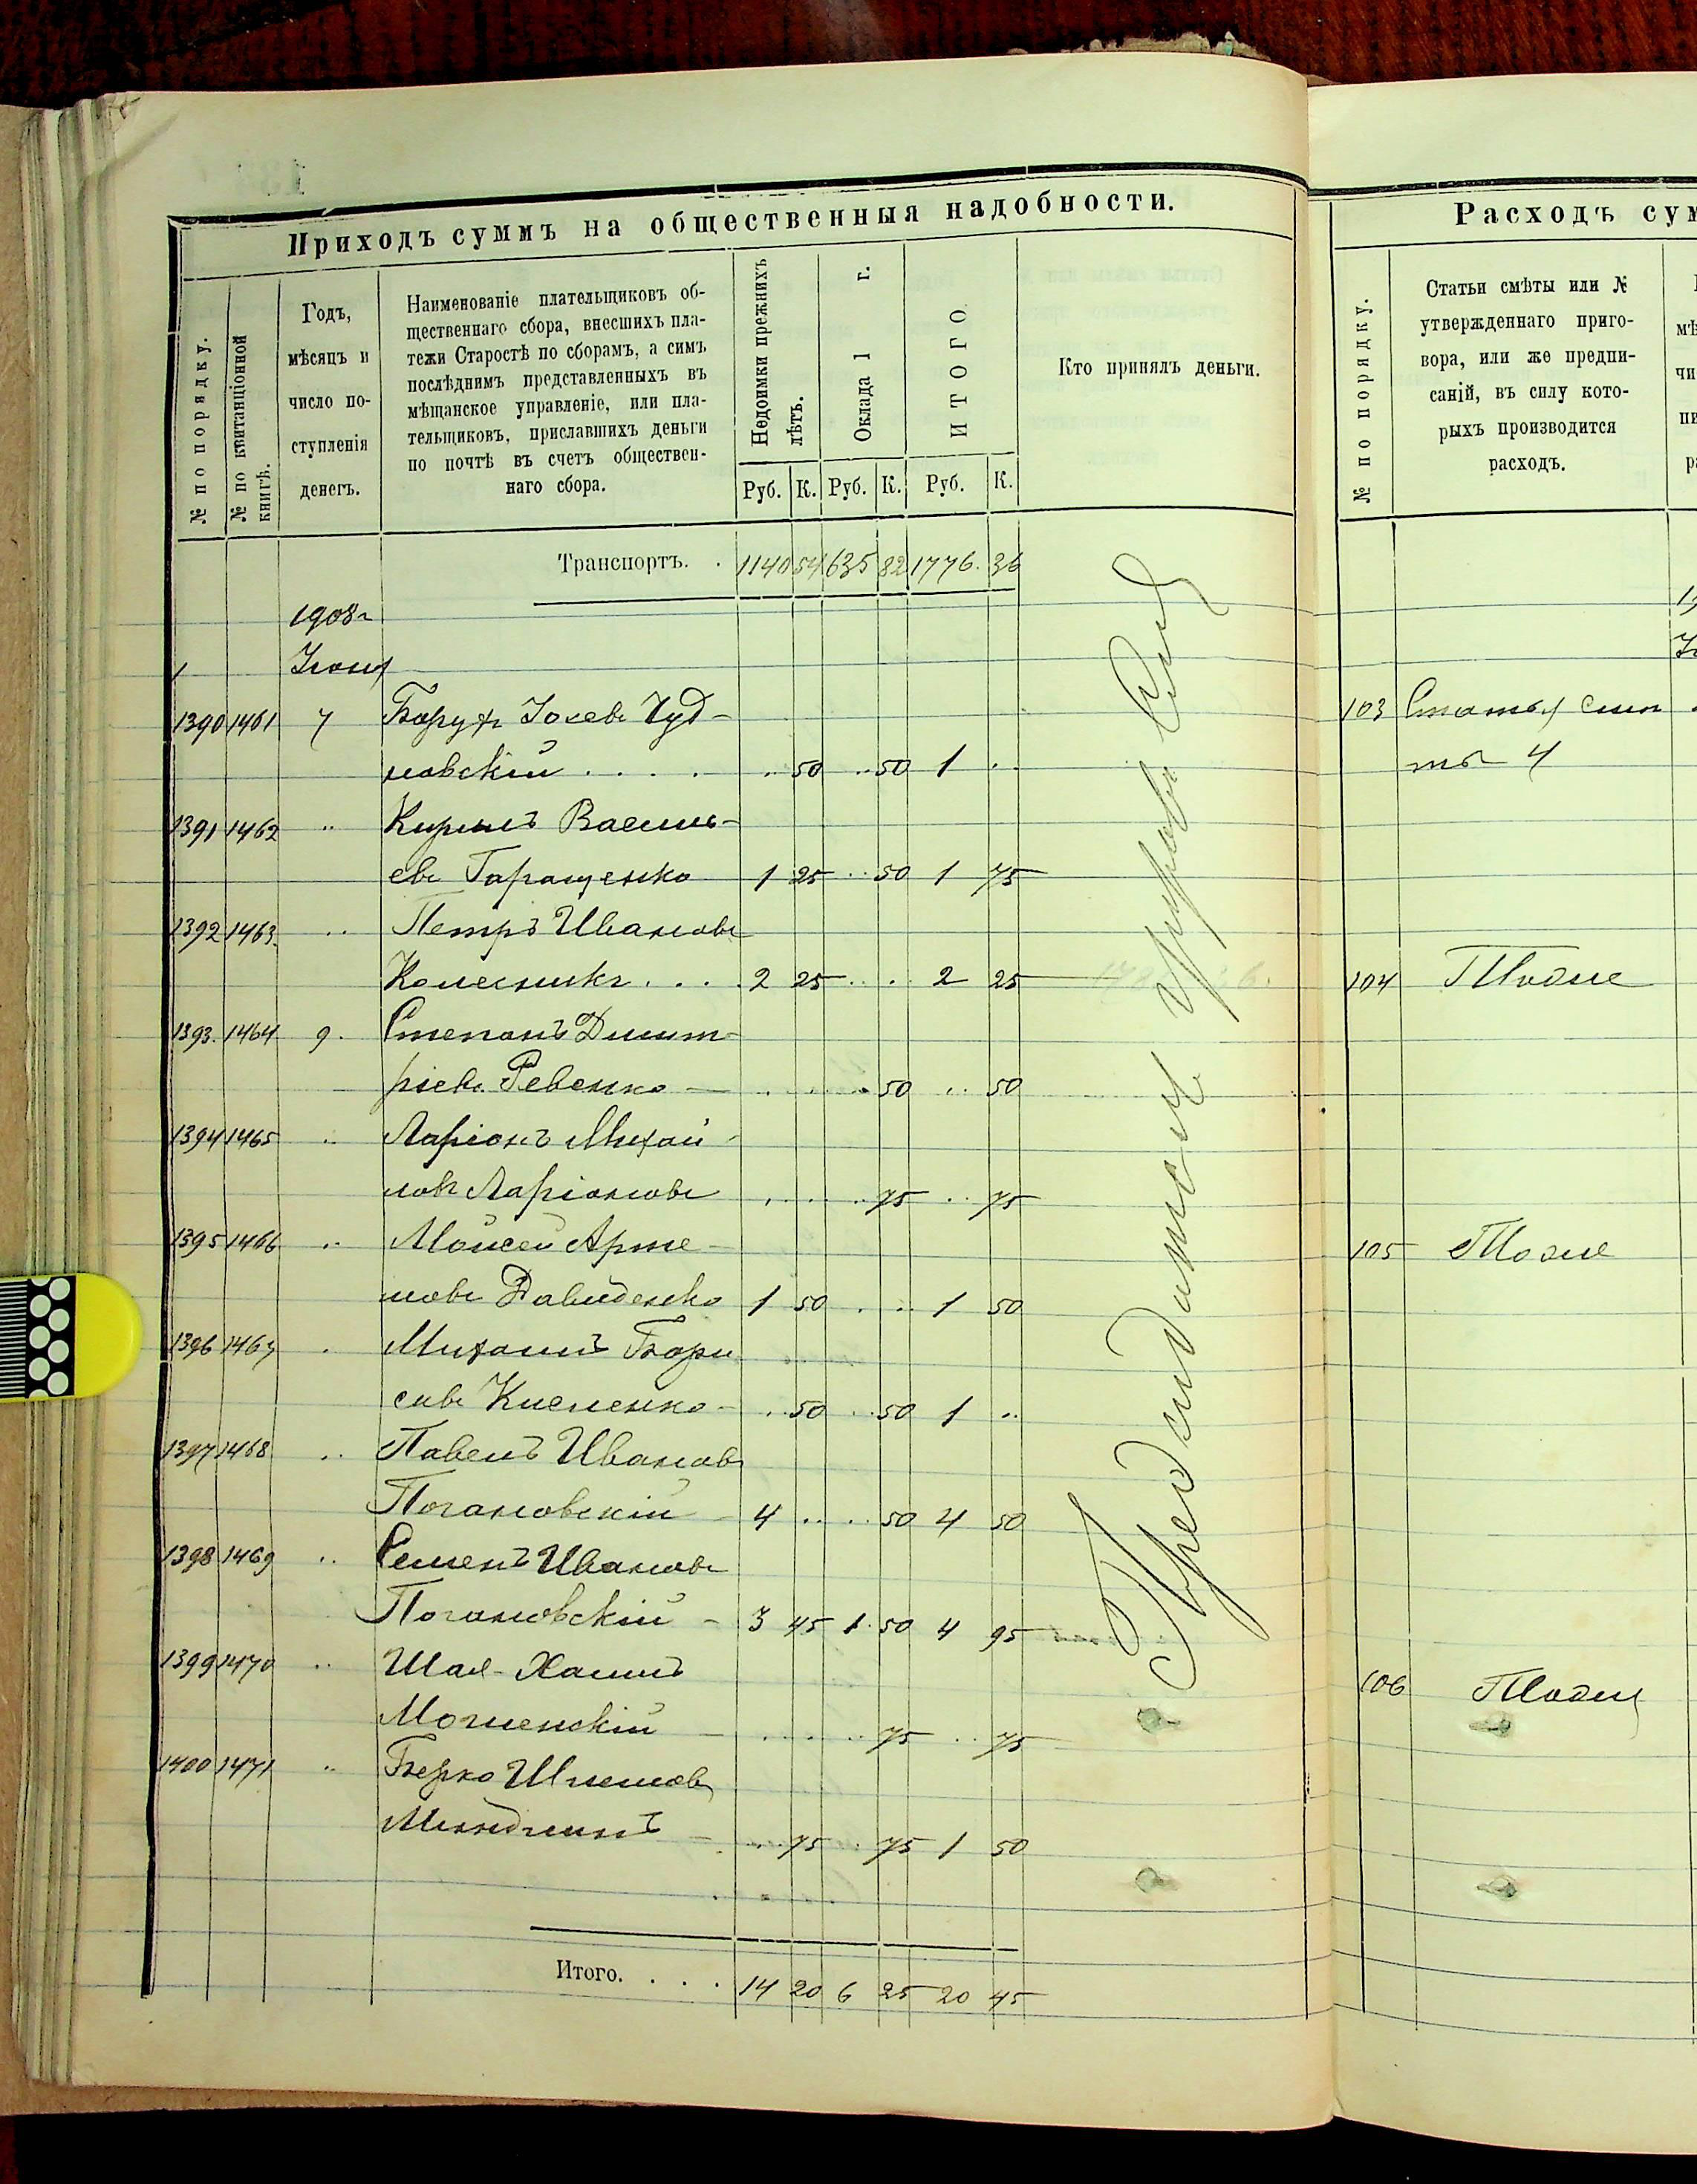 Приходъ суммъ на общественныя надобности.
№ по порядку.
№ по квитанціонной книгѣ.
Годъ,
мѣсяцъ и
число по-
ступленія
денегъ.
Наименованіе плательщиковъ об-
щественнаго сбора, внесшихъ пла-
тежи Старостѣ по сборамъ, а симъ
послѣднимъ представленныхъ въ
мѣщанское управленіе, или пла-
тельщиковъ, приславшихъ деньги
по почтѣ въ счетъ обществен-
наго сбора.
Недоимки прежнихъ лѣтъ.
Оклада 1 г.
ИТОГО
Руб. К. Руб. К. Руб. К.
Кто принялъ деньги.
Транспортъ. . 1140 54 635 82 1776. 36
1908 г
Іюня
1390 1461 7 Борухъ Іосевъ Чуд-
новскій . . . . .. 50 .. 50 1 ..
1391 1462 .. Кирилъ Василь-
евъ Гаращенко 1 25 .. 50 1 75
1392 1463. .. Петръ Ивановъ
Колесникъ . . . . 2 25 .. . 2 25
1393. 1464 9. Степанъ Димит-
ріевъ Ревенко — . . . . 50 .. 50
1394 1465 .. Ларіонъ Михай-
ловъ Ларіоновъ . . . .. 75 .. 75
1395 1466 .. Мойсей Арте-
мовъ Давиденко 1 50 . .. 1 50
1396 1467 . Михаилъ Бори
совъ Кисленко - . 50 . 50 1 ..
1397 1468 .. Павелъ Ивановъ
Погановскій - 4 .. . 50 4 50
1398 1469 .. Семенъ Ивановъ
Погановскій - 3 45 1. 50 4 95
1399 1470 .. Шая-Хаимъ
Могиленскій — . . . .. 75 .. 75
1400 1471 .. Берко
Миндлинъ — .. 75 . 75 1 50
Итого. . . . 14 20 6 25 20 45
Предсидатель
Расходъ сум
№ по порядку.
Статьи смѣты или №
утвержденнаго приго-
вора, или же предпи-
саній, въ силу кото-
рыхъ производится
расходъ.
103 Статья смѣ
ты 4
104 Тодже
105 Тоже
106 Тодже